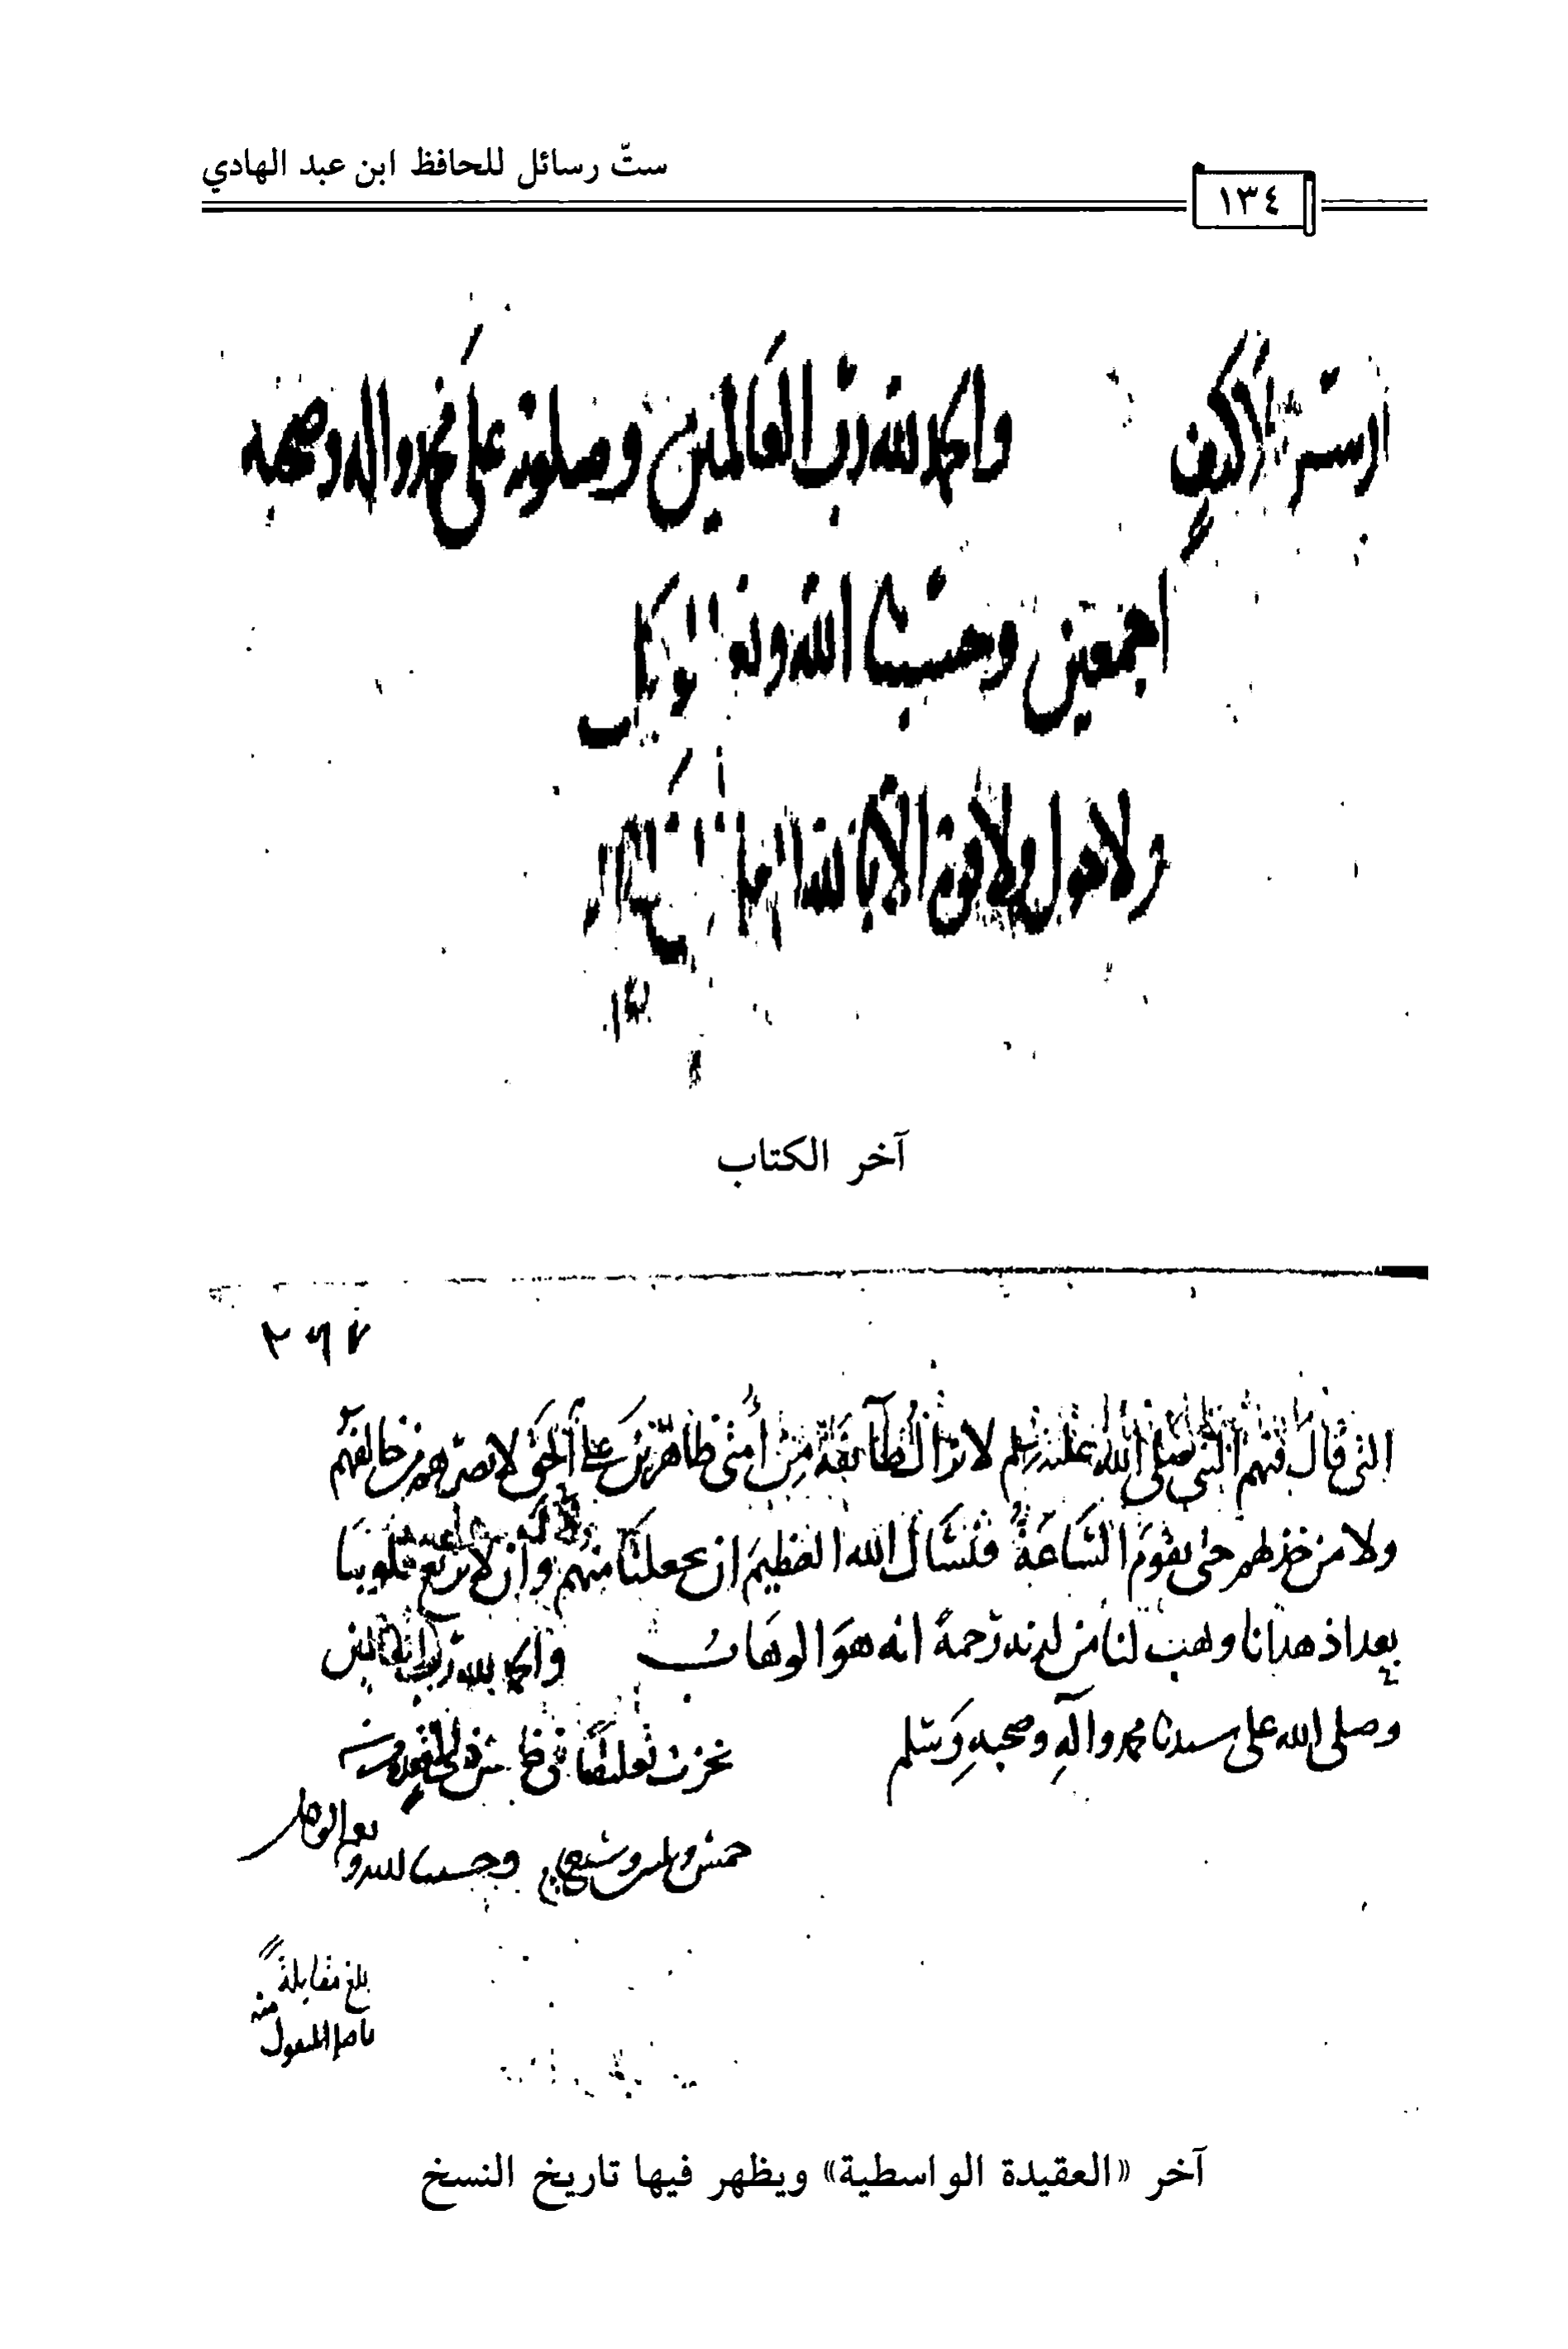 ستّ رسائل للحافظ ابن عبد الهادي
١٣٤
والحمد لله رب العالمين وصلوته على محمد واله وصحبه
اجمعين وحسبنا الله ونعم الوكيل
ولا حول ولا قوة الا بالله العلي
آخر الكتاب
٢٦٧
التي قال فيهم النبي صلى الله عليه وسلم لا تزال طائفة من أمتي ظاهرين على الحق لا يضرهم من خالفهم
ولا من خذلهم حتى تقوم الساعة فنسأل الله العظيم ان يجعلنا منهم وان لا يزيغ قلوبنا
بعد اذ هدانا وهب لنا من لدنه رحمة انه هو الوهاب والحمد لله رب العالمين
وصلى الله على سيدنا محمد وآله وصحبه وسلم نجزت تعليقا في
وحسبنا الله و
نعم الوكيل
بلغ مقابلة
باصل المنقول منه
آخر «العقيدة الواسطية» ويظهر فيها تاريخ النسخ